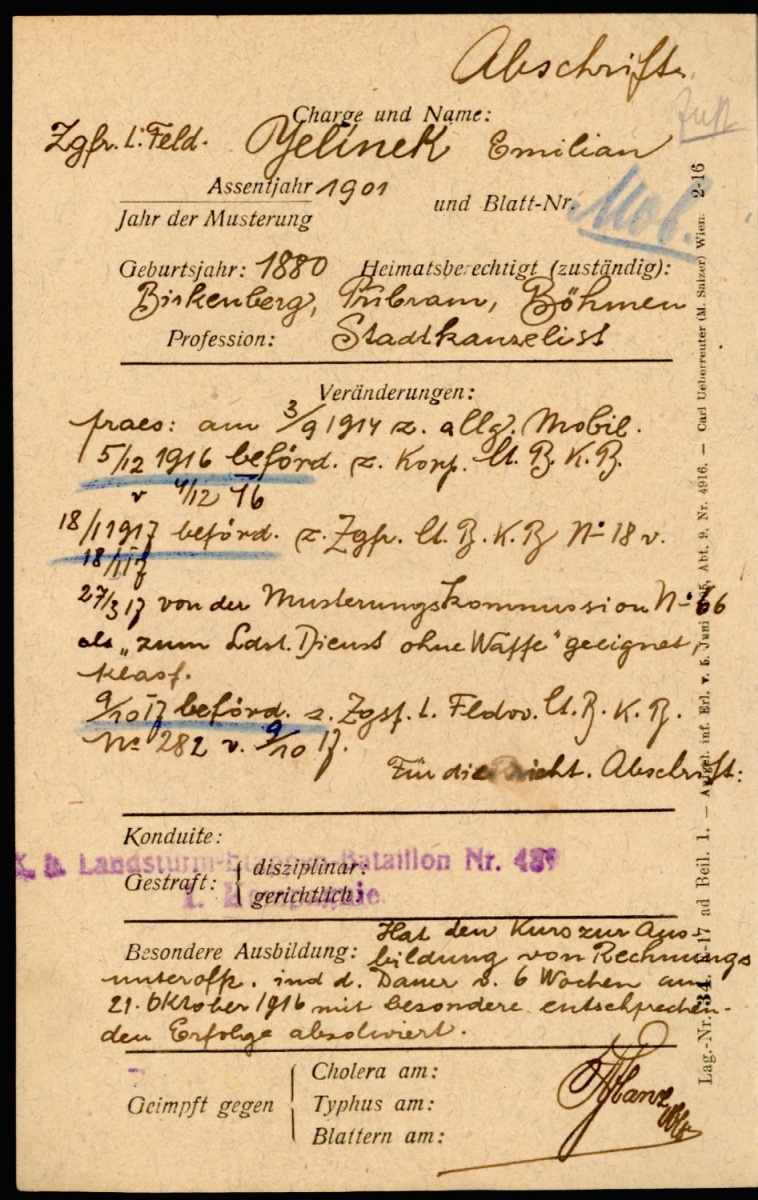 Abschrift.
Charge und Name:
Zgfr. i. Feld. Jelínek Emilian
Assentjahr 1901
Jahr der Musterung
und Blatt-Nr.
Mob.
Geburtsjahr: 1880 Heimatsberechtigt (zuständig):
Birkenberg, Pribram, Böhmen
Profession: Stadtkanzelist
Veränderungen:
praes: am 3/9 1914 z. allg. Mobil.
5/12 1916 beförd. z. Korp. lt. B. K. B.
v 4/12 16
18/1 1917 beförd. z. Zgfr. lt. B. K. B. No 18 v.
18/1 17
27/3 17 von der Musterungskommission No 66
als „zum Ldst. Dienst ohne Waffe" geeignet,
klasf.
9/10 17 beförd. z. Zgsf. i. Fldw. lt. B. K. B.
No 282 v. 9/10 17.
Für die Abschrift:
Konduite:
k. k. Landsturm-Bataillon Nr.
Gestraft: disziplinar:
gerichtlich:
Besondere Ausbildung: Hat den Kurs zur Aus-
bildung von Rechnungs
unteroffz. ind d. Dauer v. 6 Wochen am
21. Oktober 1916 mit besondere entschprechen-
den Erfolge absolwiert.
Geimpft gegen
Cholera am:
Typhus am:
Blattern am:
Lag.-Nr. 34. ad Beil. 1. — Aufgel. inf. Erl. v. 5. Juni Abt. 9, Nr. 4916. — Carl Ueberreuter (M. Salzer) Wien. 2-16